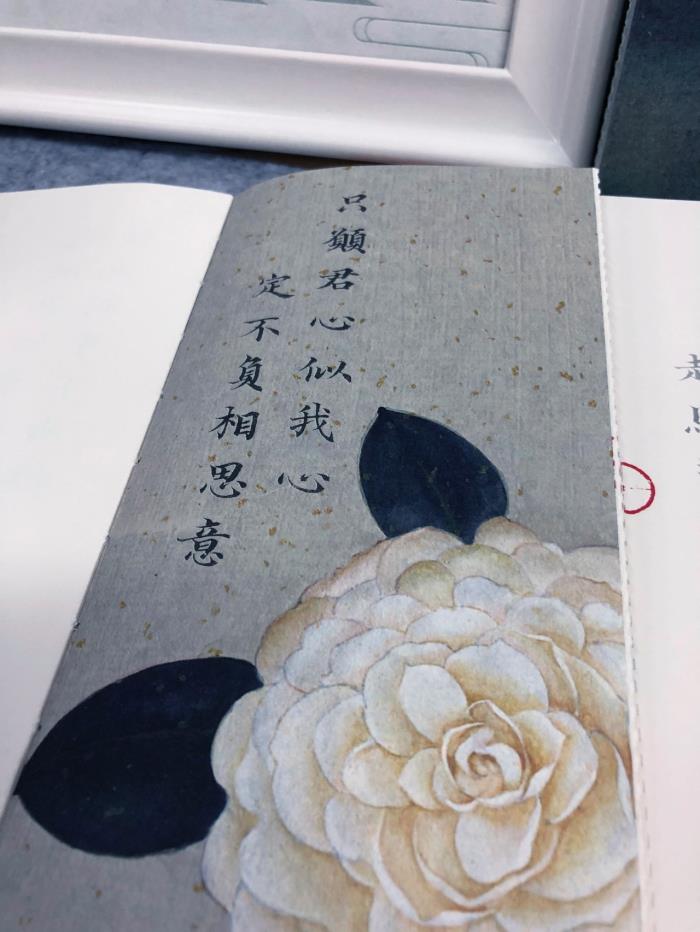 只顚君心似我心
定不負相思意